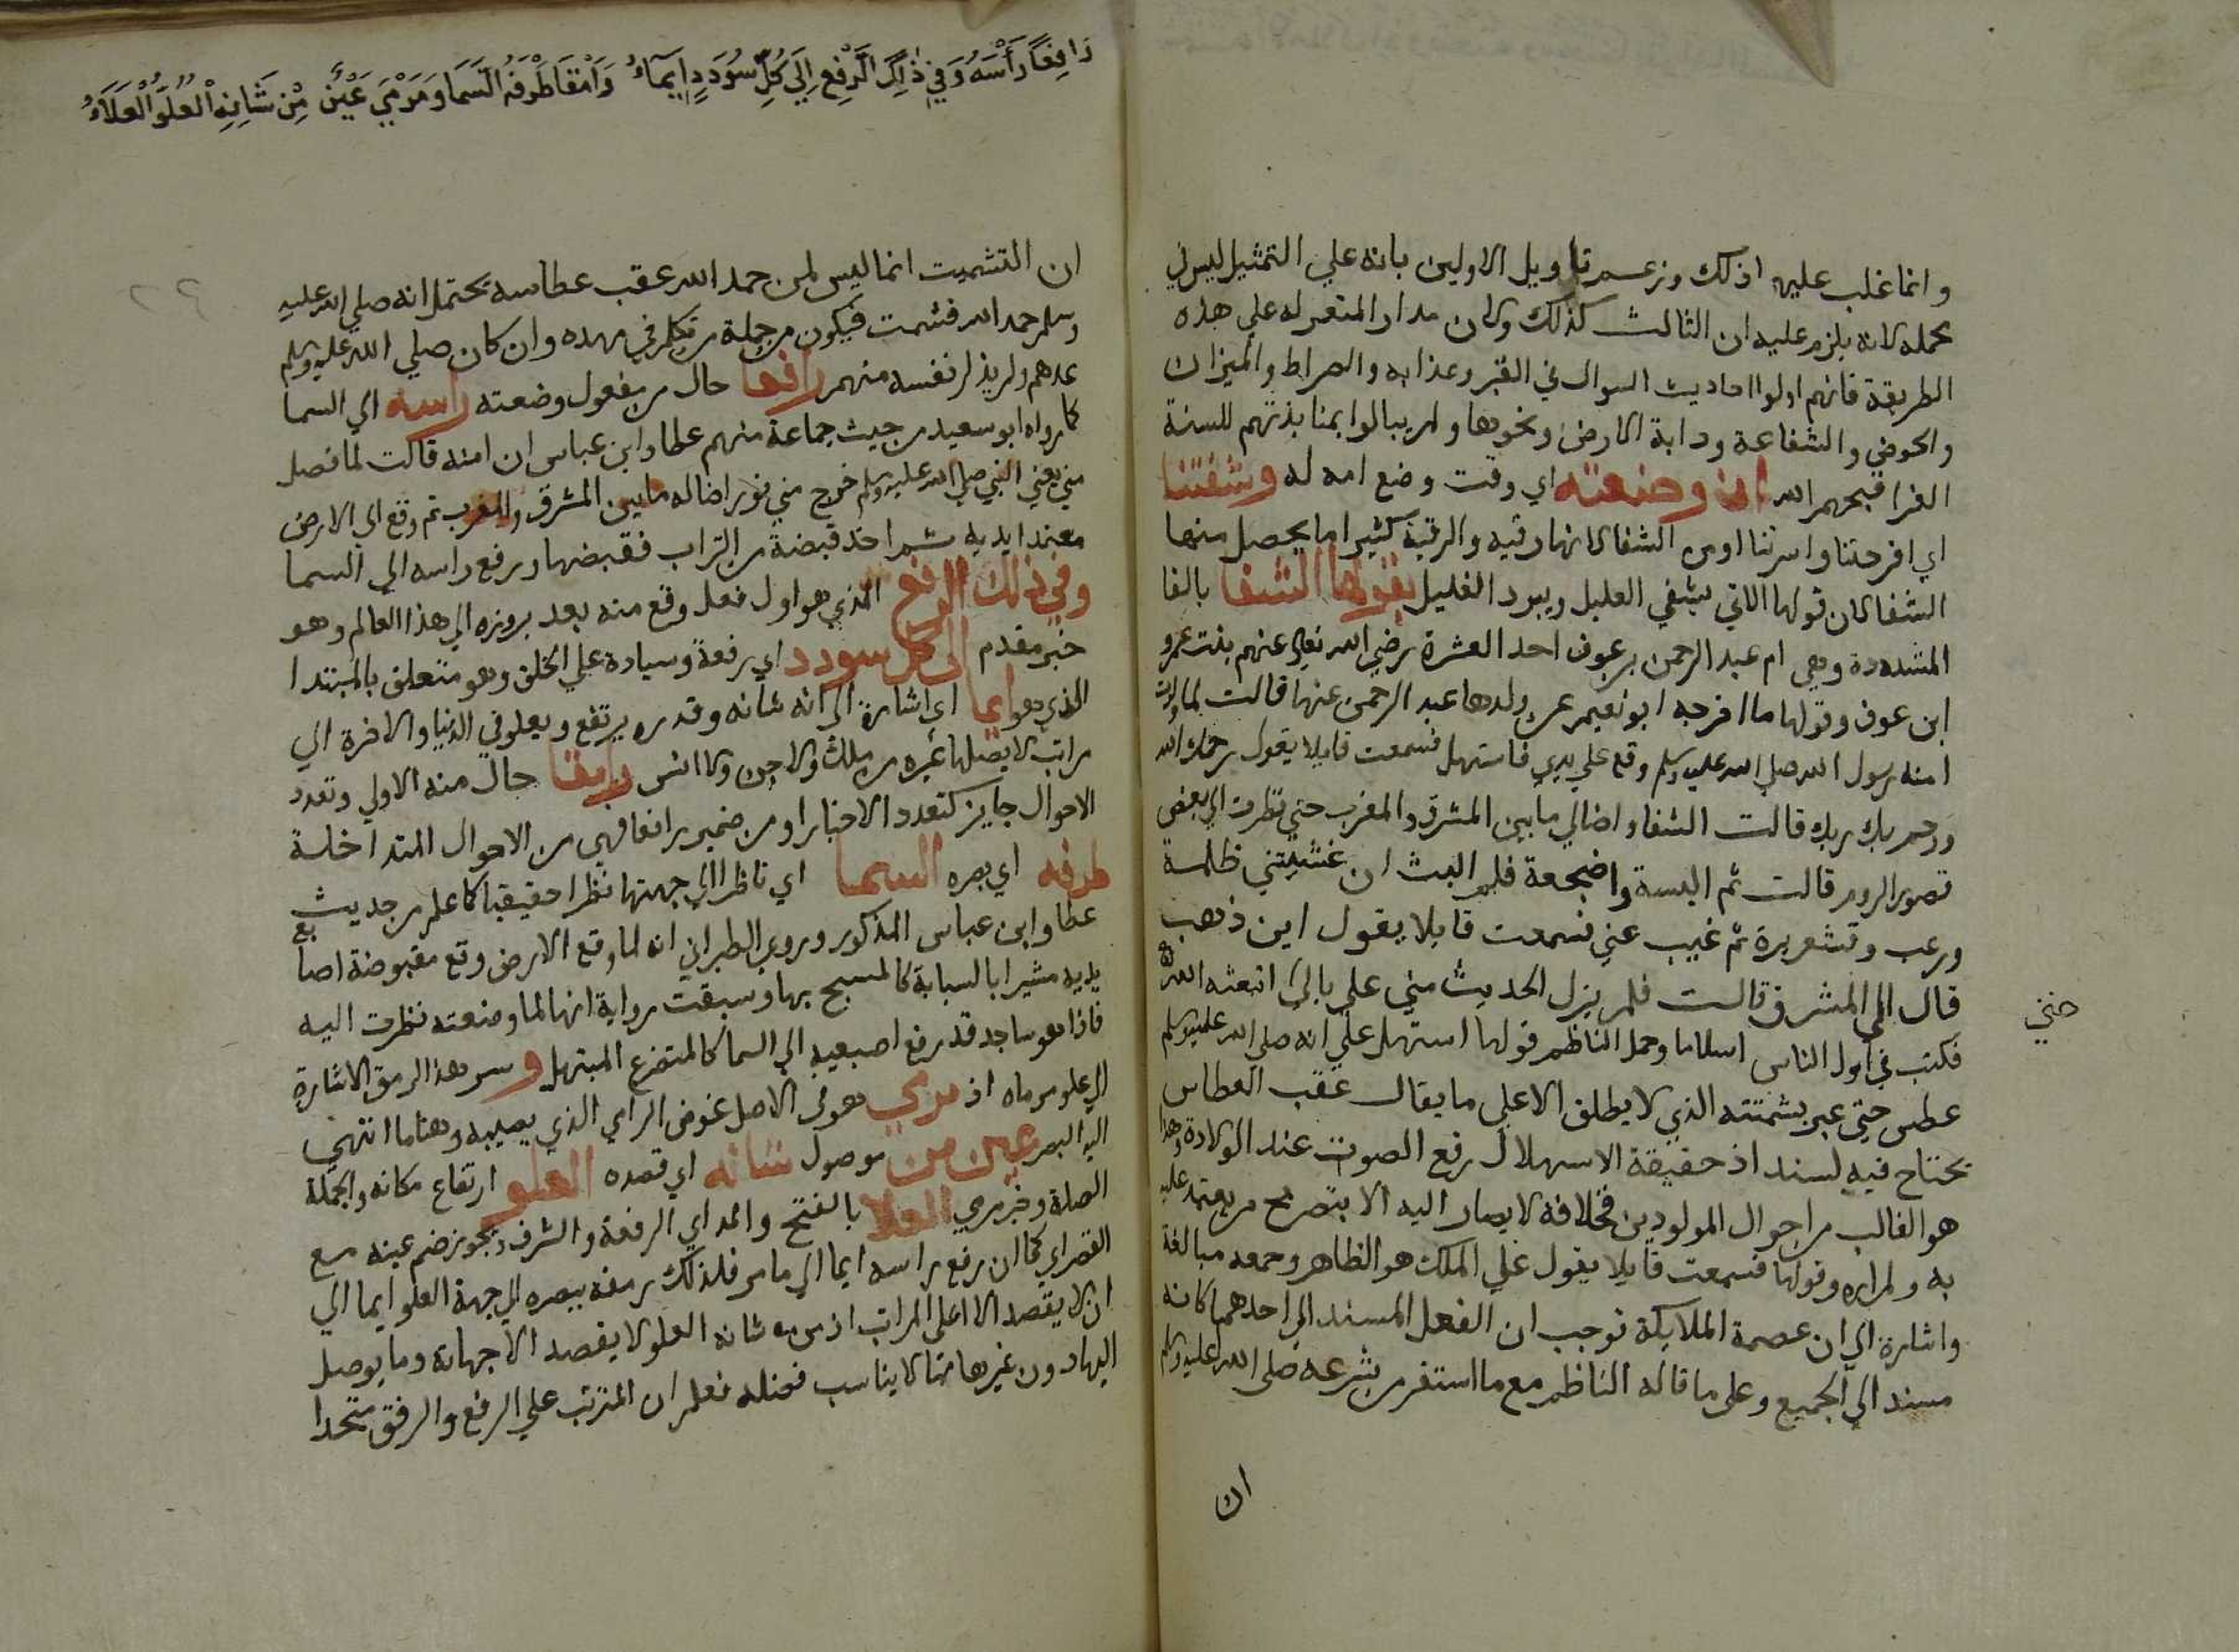 وانما غلب عليه اذلك وزعم تاويل الاولين بانه علي التمثيل ليس في
محله لانه يلزم عليه ان الثالث كذلك وكان مدار المتعرله علي هذه
الطريقة فانهم اولوا احاديث السوال في القبر وعذابه والصراط والميزان
والحوض والشفاعة ودابة الارض ونحوها ولم يبالوا بمنابذتهم للسنة
الغرا قبحهم الله اذ وضعته اي وقت وضع امه له وشفتنا
اي افرحتنا واسرتنا اومن الشفا لانها رقيه والرقية كثيرا ما يحصل منها
الشفا لان قولها الاتي يشفي العليل ويبرد الغليل بقولها الشفا بالفا
المشددة وهي ام عبد الرحمن بن عوف احد العشرة رضي الله تعالي عنهم بنت عمرو
ابن عوف وقولها ما اخرجه ابو نعيم عن ولدها عبد الرحمن عنها قالت لما ولدت
امنه رسول الله صلي الله عليه وسلم وقع علي يدي فاستهل فسمعت قايلا يقول رحمك الله
ورحم بك ربك قالت الشفا واضالي ما بين المشرق والمغرب حتي نظرت الي بعض
قصور الروم قالت ثم البسة واضجعة فلم البث ان غشيتني ظلمة
ورعب وقشعريرة ثم غيب عني فسمعت قايلا يقول اين ذهب
قال الي المشرق قالت فلم يزل الحديث مني علي بالي ابتعثه الله
حتي
فكنت في اول الناس اسلاما وحمل الناظم قولها استهل علي انه صلي الله عليه وسلم
عطس حتي عبر بشمتته الذي لا يطلق الا علي ما يقال عقب العطاس
يحتاج فيه لسند اذ حقيقة الاستهلال رفع الصوت عند الولادة وهذا
هو الغالب من احوال المولودين فخلافه لا يصار اليه الا بتصريح من يعتمد عليه
به ولم اره وقولها فسمعت قايلا يقول علي الملك هو الظاهر وجمعه مبالغة
واشارة الي ان عصمة الملايكة توجب ان الفعل المسند الي احدهم كانه
مسند الي الجميع وعلي ما قاله الناظم مع ما استقر من شرعه صلي الله عليه وسلم
ان
رَافِعًا رَأْسَهُ وَفِي ذٰلِكَ الرَّفْعِ اِلَي كُلِّ سُوْدَدٍ اِيمَآءُ وَامِقًا طَرْفُهُ السَّمَا وَمَرْمَي عَيْنٍ مَنْ شَانُهُ الْعُلُوُّ الْعَلَاءُ
ان التشميت انما ليس لمن حمد الله عقب عطاسه يحتمل انه صلي الله عليه
وسلم حمد الله فشمت فيكون من جملة من تكلم في مهده وان كان صلي الله عليه وسلم
عدهم ولم يذكر نفسه منهم رافعا حال من مفعول وضعته راسه الي السما
كما رواه ابو سعيد من حيث جماعة منهم عطا وابن عباس ان امنه قالت لما فصل
مني يعني النبي صلي الله عليه وسلم خرج مني نور اضا له ما بين المشرق والمغرب ثم وقع الي الارض
معتمدا يديه ثم اخذ قبضة من التراب فقبضها ورفع راسه الي السما
وفي ذلك الرفع الذي هو اول فعل وقع منه بعد بروزه الي هذا العالم وهو
خبر مقدم الي كل سودد اي رفعة وسيادة علي الخلق وهو متعلق بالمبتدا
الذي هو ايما اي اشارة الي انه شانه وقدره يرتفع ويعلو في الدنيا والاخرة الي
مراتب لا يصلها غيره من ملك ولا جن ولا انس رامقا حال منه الاولي وتعدد
الاحوال جايز كتعدد الاخبار او من ضمير رافعا فهي من الاحوال المتداخلة
طرفه اي بصره السما اي ناظرا الي جهتها نظرا حقيقيا كما علم من حديث
عطا وابن عباس المذكور وروي الطبراني انه لما وقع الارض وقع مقبوضة اصابع
يديه مشيرا بالسبابة كالمسبح بها وسبقت رواية انها لما وضعته نظرت اليه
فاذا هو ساجد قد رفع اصبعيه الي السما كالمتضرع المبتهل و سر هذا الرمق الاشارة
الي علو مرماه اذ مرمي هو في الاصل غرض الرامي الذي يصيبه وهنا ما انتهي
اليه البصر عين من موصول شانه اي قصده العلو ارتفاع مكانه والجملة
الصلة وخبر مرمي العلا بالفتح والمد اي الرفعة والشرف ويجوز ضم عينه مع
القصر اي كما ان رفع راسه ايما الي ما مر فلذلك رمقه ببصره الي جهة العلو ايما الي
ان لا يقصد الا اعلي المراتب اذ من شانه العلو لا يقصد الا جهاته وما يوصل
اليها دون غيرها مما لا يناسب فضله فعلم ان المترتب علي الرفع والرفق متحدا